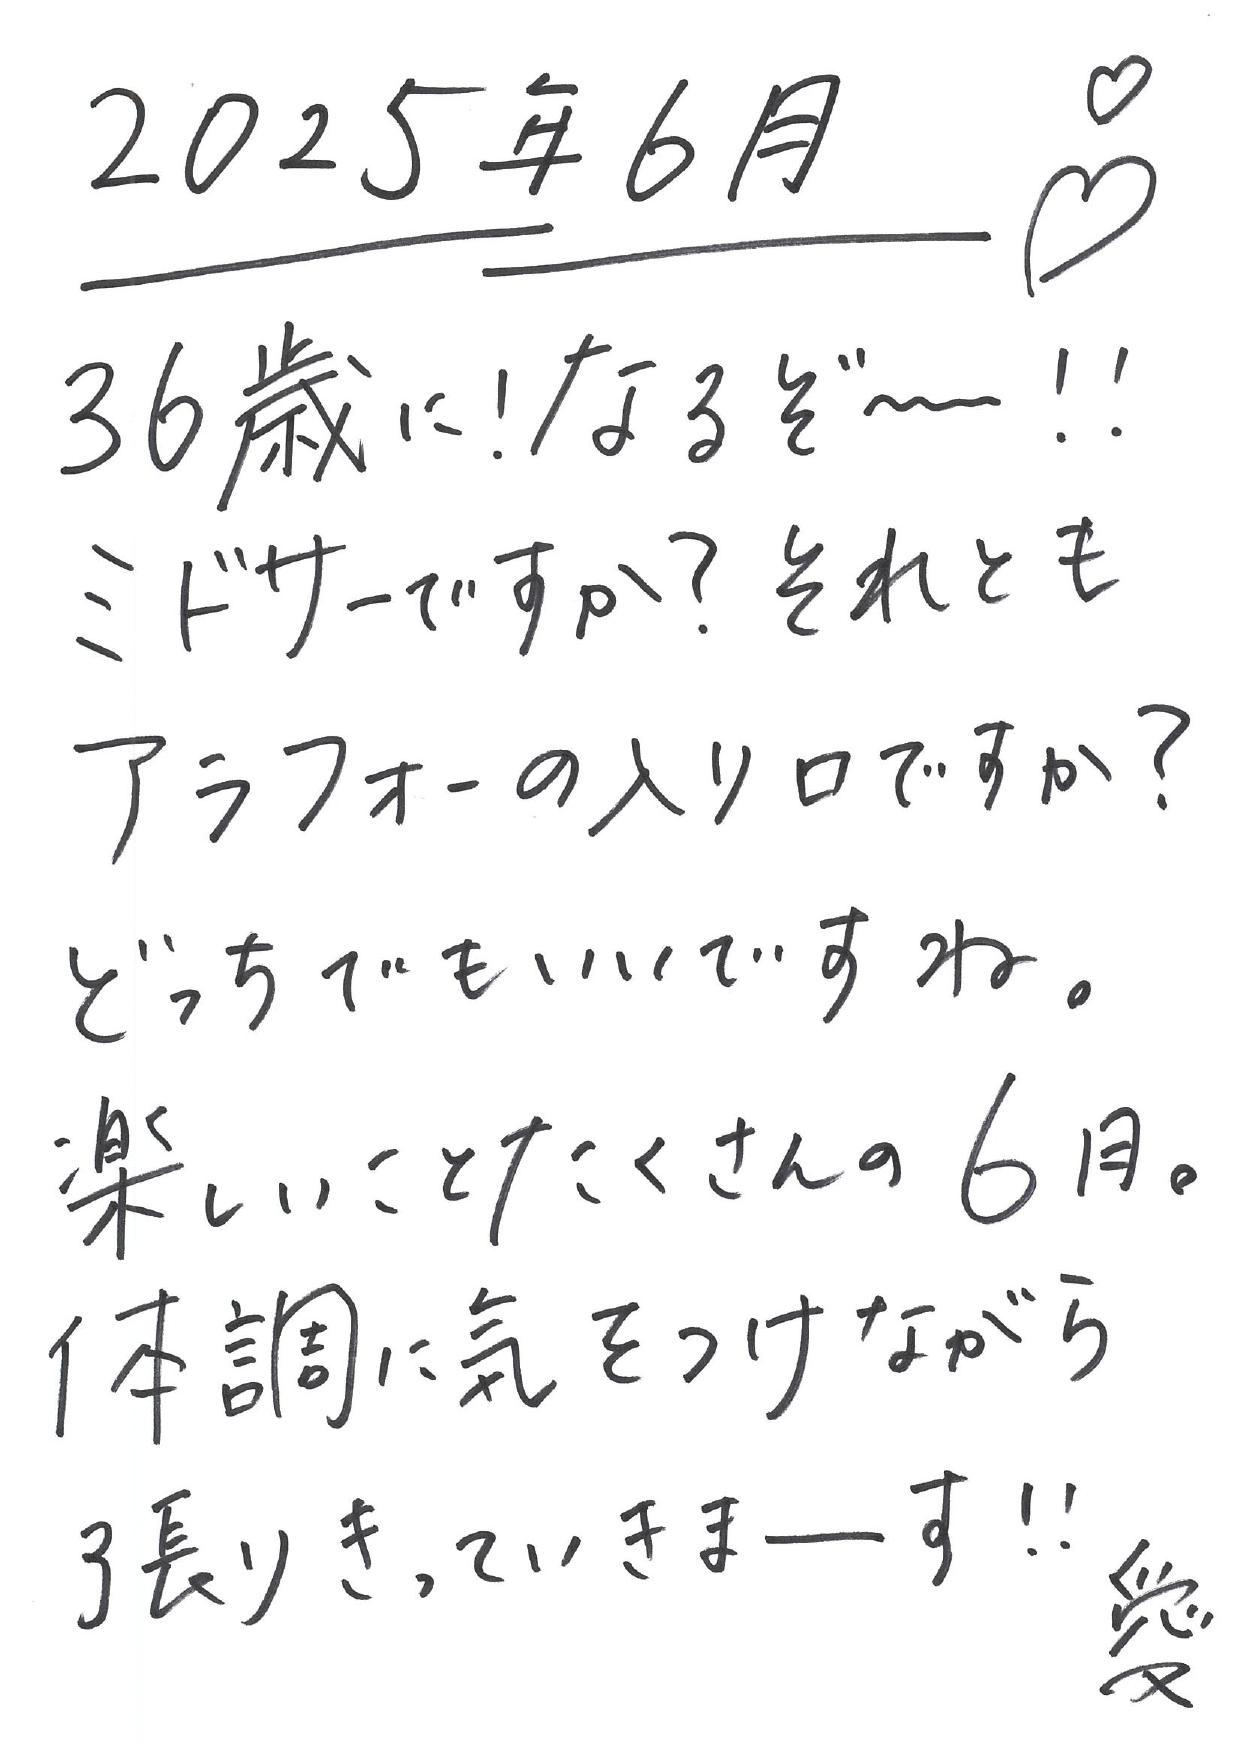 2025年6月
36歳に!なるぞ〜!!
ミドサーですか?それとも
アラフォーの入り口ですか?
どっちでもいいですね。
楽しいことたくさんの6月。
体調に気をつけながら
張りきっていきまーす!!
愛